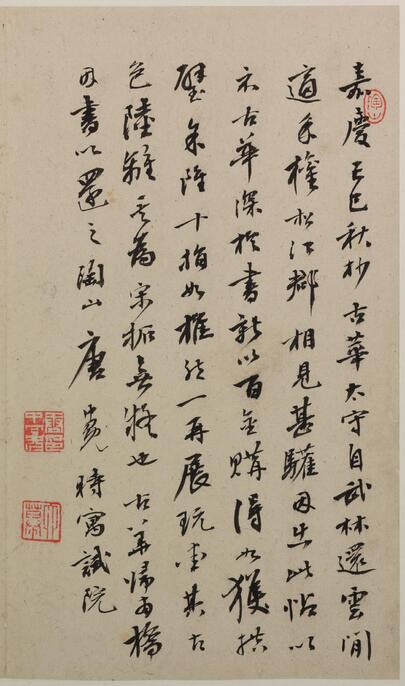 嘉慶丁巳秋杪古華太守自武林還雲間
適余權松江郡相見甚驩因出此帖以
示古華深於書新以百金購得如獲拱
璧余雖十指如椎然一再展玩愛其古
色陸離其為宋拓無疑也古華歸南橋
因書以還之陶山唐仲冕時寓試院